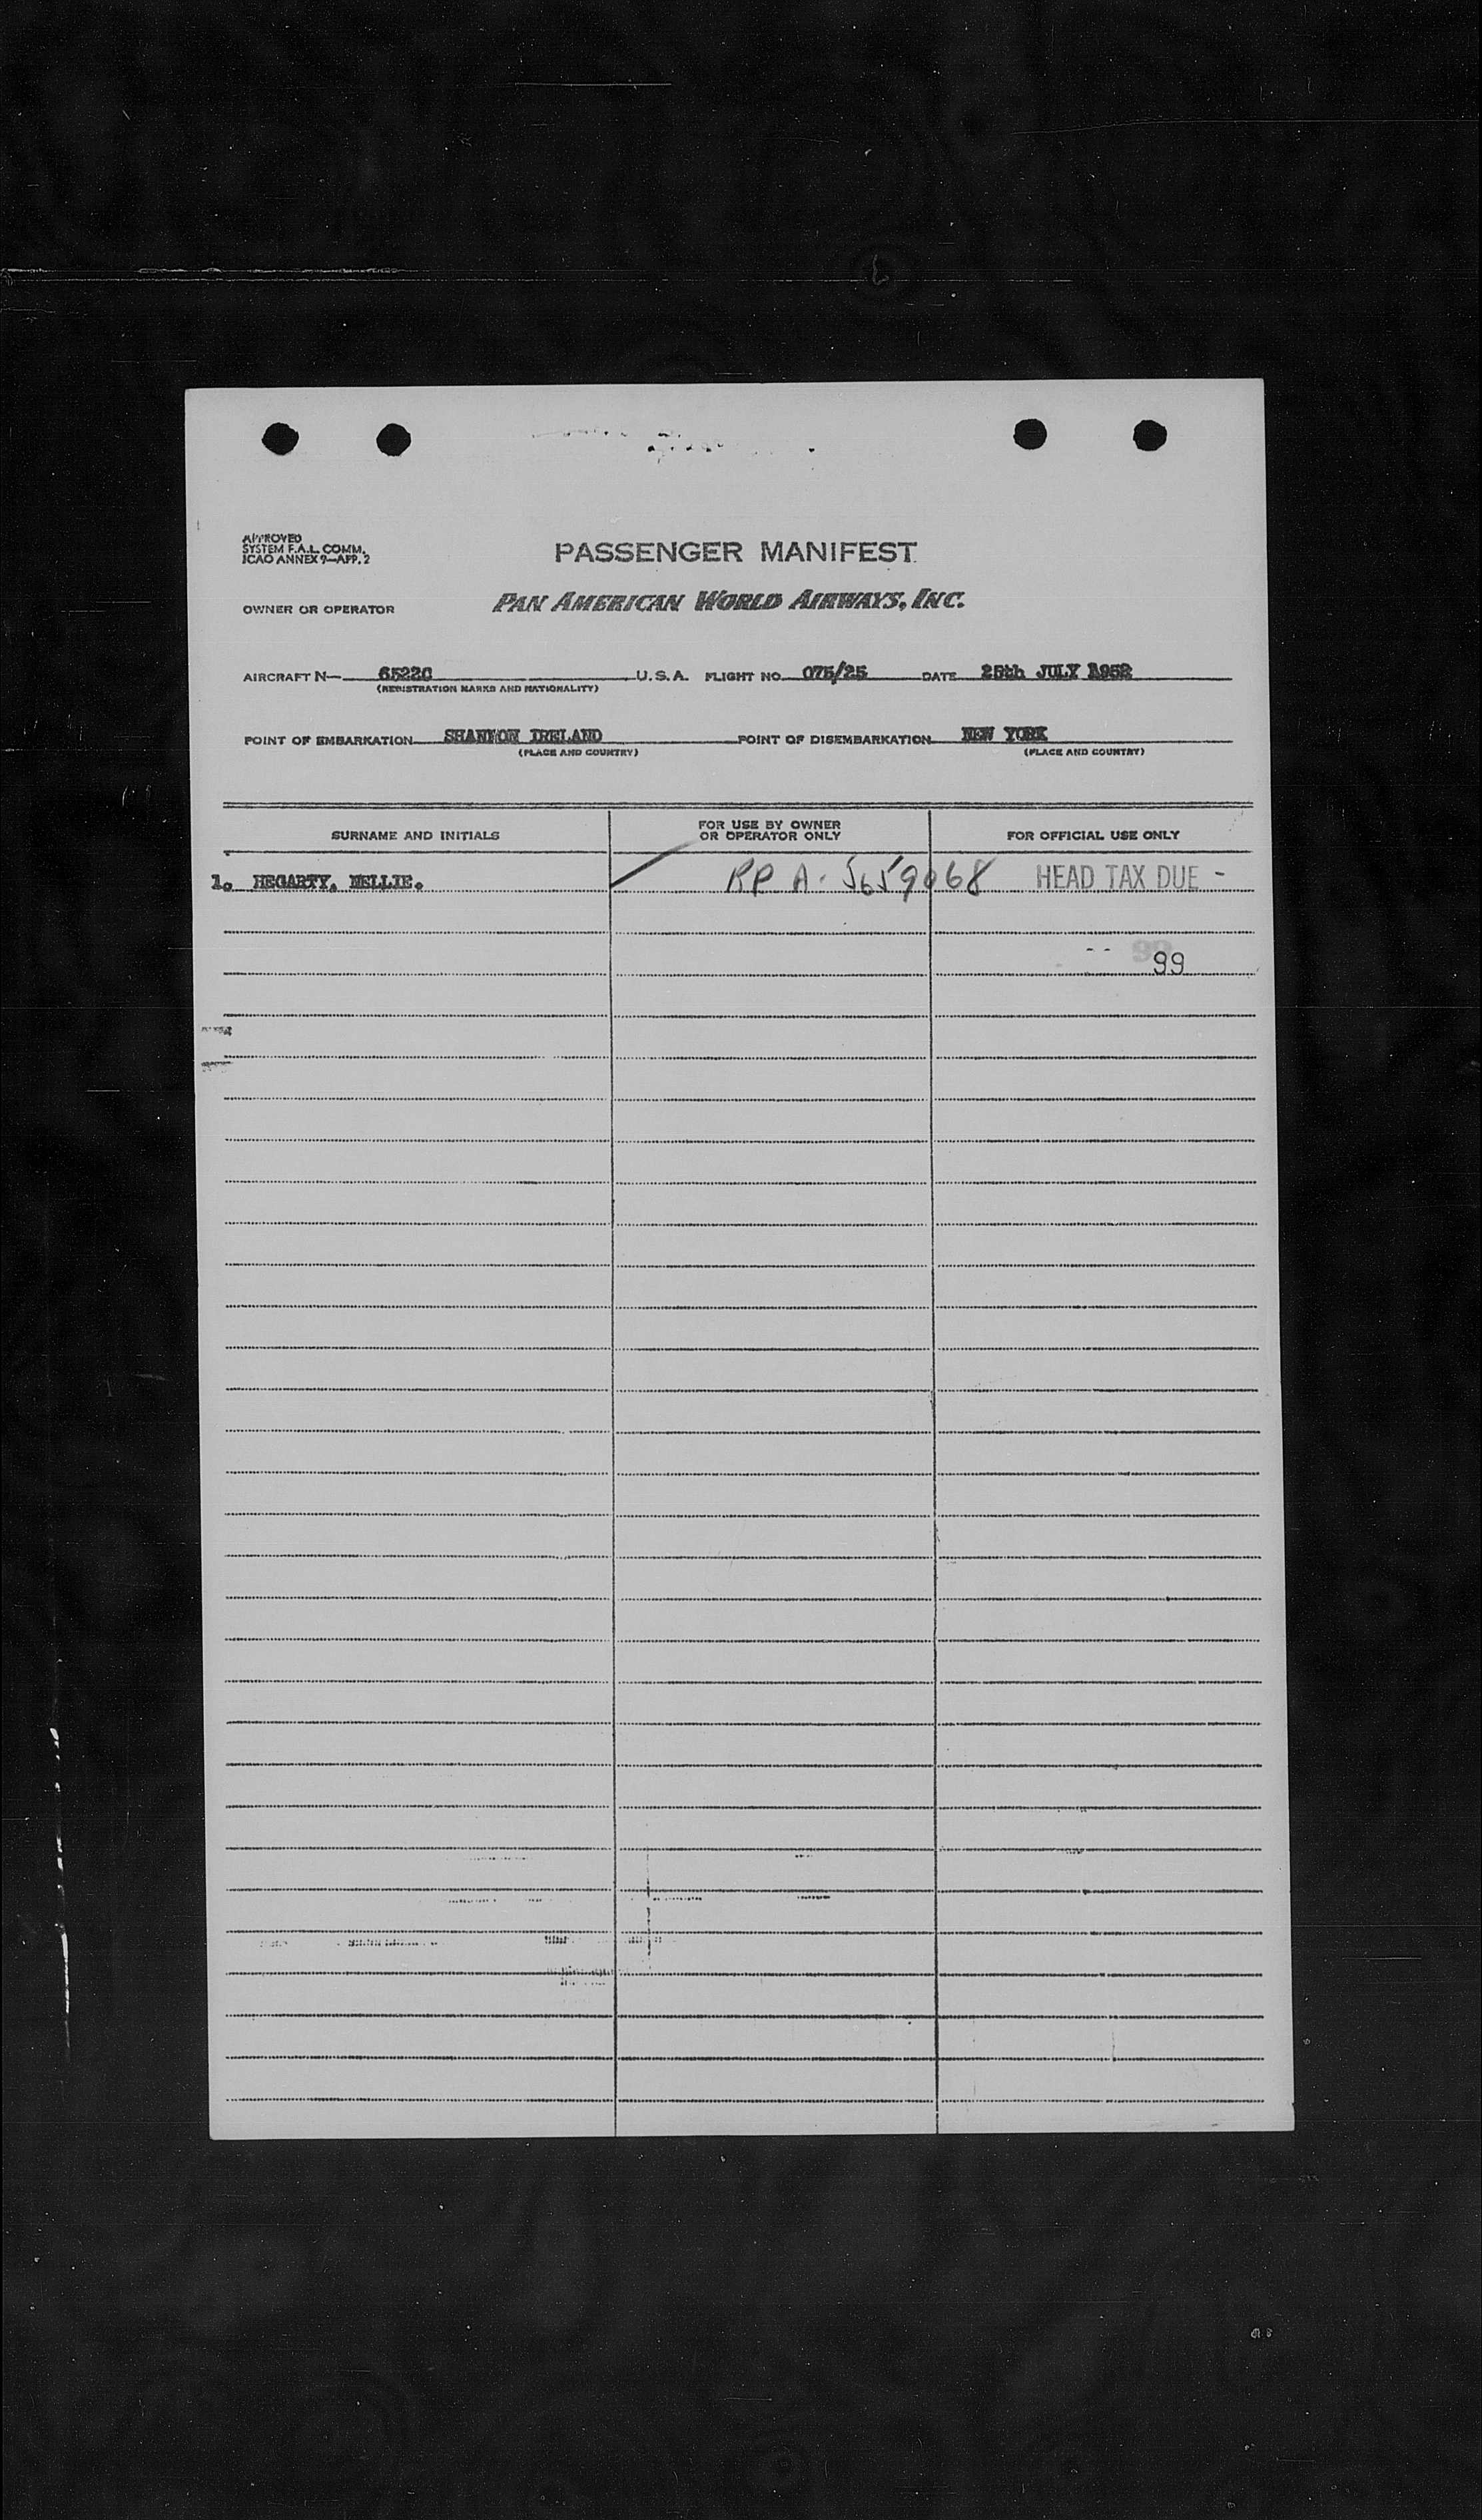 APPROVED
SYSTEM F.A.L. COMM.
ICAO ANNEX 9—APP. 2
PASSENGER MANIFEST
OWNER OR OPERATOR PAN AMERICAN WORLD AIRWAYS, INC.
AIRCRAFT N— 6522C U.S.A. FLIGHT NO. 075/25 DATE 25th JULY 1952
(REGISTRATION MARKS AND NATIONALITY)
POINT OF EMBARKATION SHANNON IRELAND POINT OF DISEMBARKATION NEW YORK
(PLACE AND COUNTRY) (PLACE AND COUNTRY)
SURNAME AND INITIALS FOR USE BY OWNER OR OPERATOR ONLY FOR OFFICIAL USE ONLY
1. HEGARTY, NELLIE. RP A- 5659068 HEAD TAX DUE -
99
99